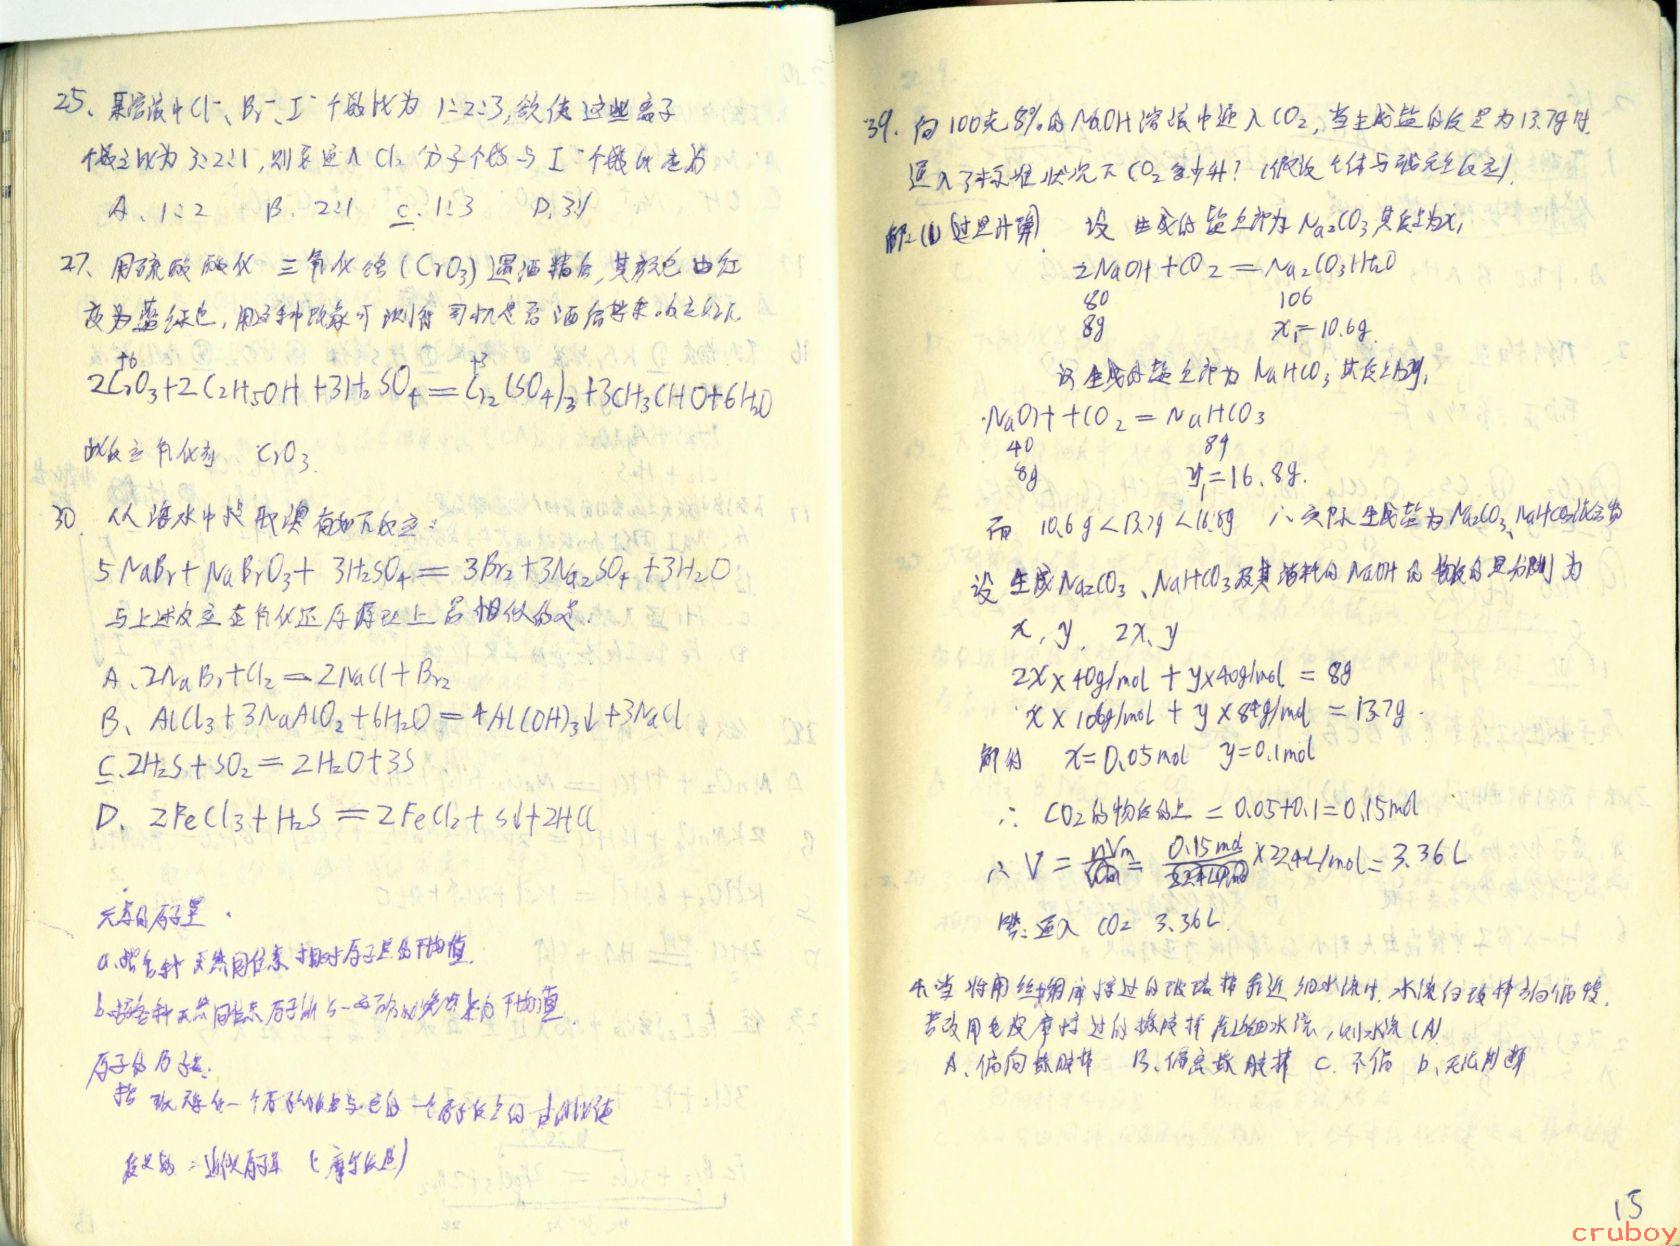 25、某溶液中Cl⁻、Br⁻、I⁻个数比为 1:2:3,欲使这些离子
个数之比为3:2:1,则要通入Cl₂分子个数与I⁻个数比为
A、1:2 B、2:1 C.1:3 D.3:1
27、用硫酸酸化三氧化铬(CrO₃)遇酒精后,其颜色由红
变为蓝绿色,用这种现象可测得司机是否酒后驾车。反应如下
+6 +3
2CrO₃+2C₂H₅OH+3H₂SO₄=Cr₂(SO₄)₃+3CH₃CHO+6H₂O
此反应氧化剂 CrO₃.
30、从海水中提取溴有如下反应:
5NaBr+NaBrO₃+3H₂SO₄=3Br₂+3Na₂SO₄+3H₂O
与上述反应在氧化还原原理上最相似的是.
A、2NaBr+Cl₂=2NaCl+Br₂
B、AlCl₃+3NaAlO₂+6H₂O=4Al(OH)₃↓+3NaCl
C.2H₂S+SO₂=2H₂O+3S
D、2FeCl₃+H₂S=2FeCl₂+S↓+2HCl
元素的原子量.
a、指各种天然同位素相对原子量的平均值.
b、指各种天然同位素原子的 平均值.
原子的原子量.
指 一个原子的 与
近似原子量 (摩尔质量)
39.向100克8%的NaOH溶液中通入CO₂,当生成盐的质量为13.7g时.
通入了标准状况下CO₂多少升?(假设气体与碱完全反应).
解:(1)(过量计算) 设生成的盐全部为Na₂CO₃其质量为x₁
2NaOH+CO₂=Na₂CO₃H₂O
80 106
8g x₁=10.6g.
设生成的盐全部为NaHCO₃其质量为y₁
NaOH+CO₂=NaHCO₃
40 84
8g y₁=16.8g.
而 10.6g<13.7g<16.8g ∴实际生成盐为Na₂CO₃、NaHCO₃混合物
设生成Na₂CO₃、NaHCO₃及其消耗的NaOH的物质的量分别为
x,y. 2x、y
2x×40g/mol+y×40g/mol=8g
x×106g/mol+y×84g/mol=13.7g.
解得 x=0.05mol y=0.1mol
∴CO₂的物质的量=0.05+0.1=0.15mol
∴V=nVm=0.15mol×22.4L/mol=3.36L
答:通入 CO₂ 3.36L.
4.当将用丝绸摩擦过的玻璃棒靠近细水流时.水流向玻棒方向偏转.
若改用毛皮摩擦过的橡胶棒靠近细水流,则水流(A)
A、偏向橡胶棒 B、偏离橡胶棒 C.不偏 D、无法判断
15
cruboy